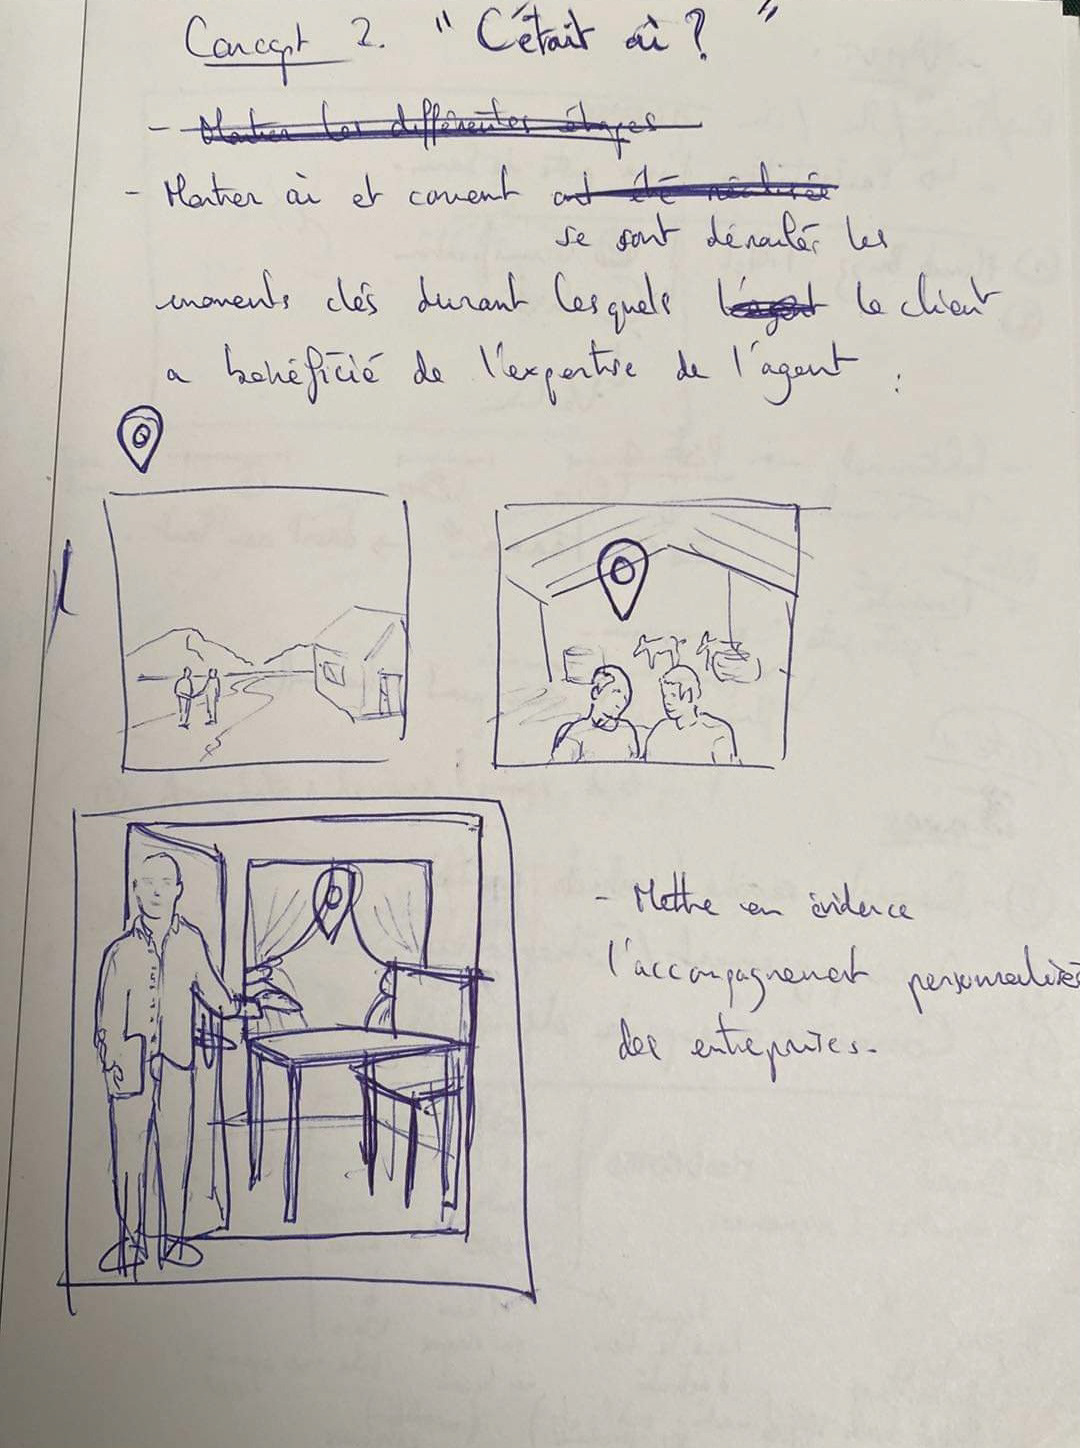 Concept 2. "C'était où ?"
- Montrer les différentes étapes
- Montrer où et comment ont été réalisés
se sont déroulés les
moments clés durant lesquels l'agent le client
a bénéficié de l'expertise de l'agent :
- Mettre en évidence
l'accompagnement personnalisés
des entreprises.